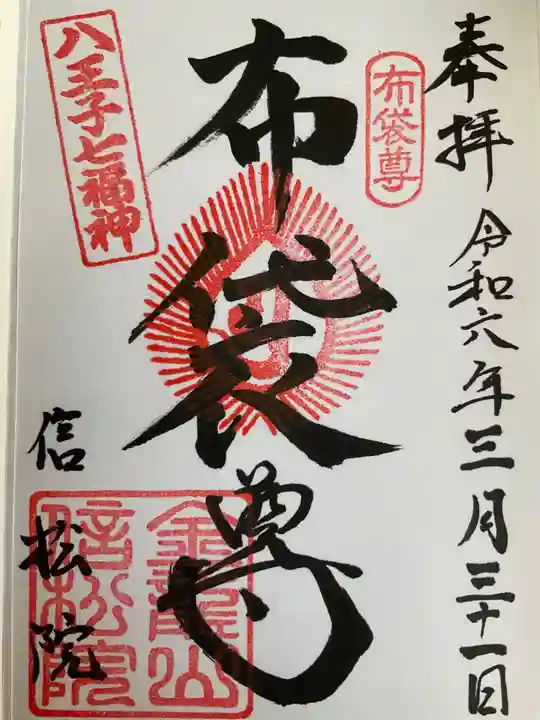 奉拝 令和六年三月三十一日
布袋尊
布袋尊
八王子七福神
信松院
金龍山
信松院